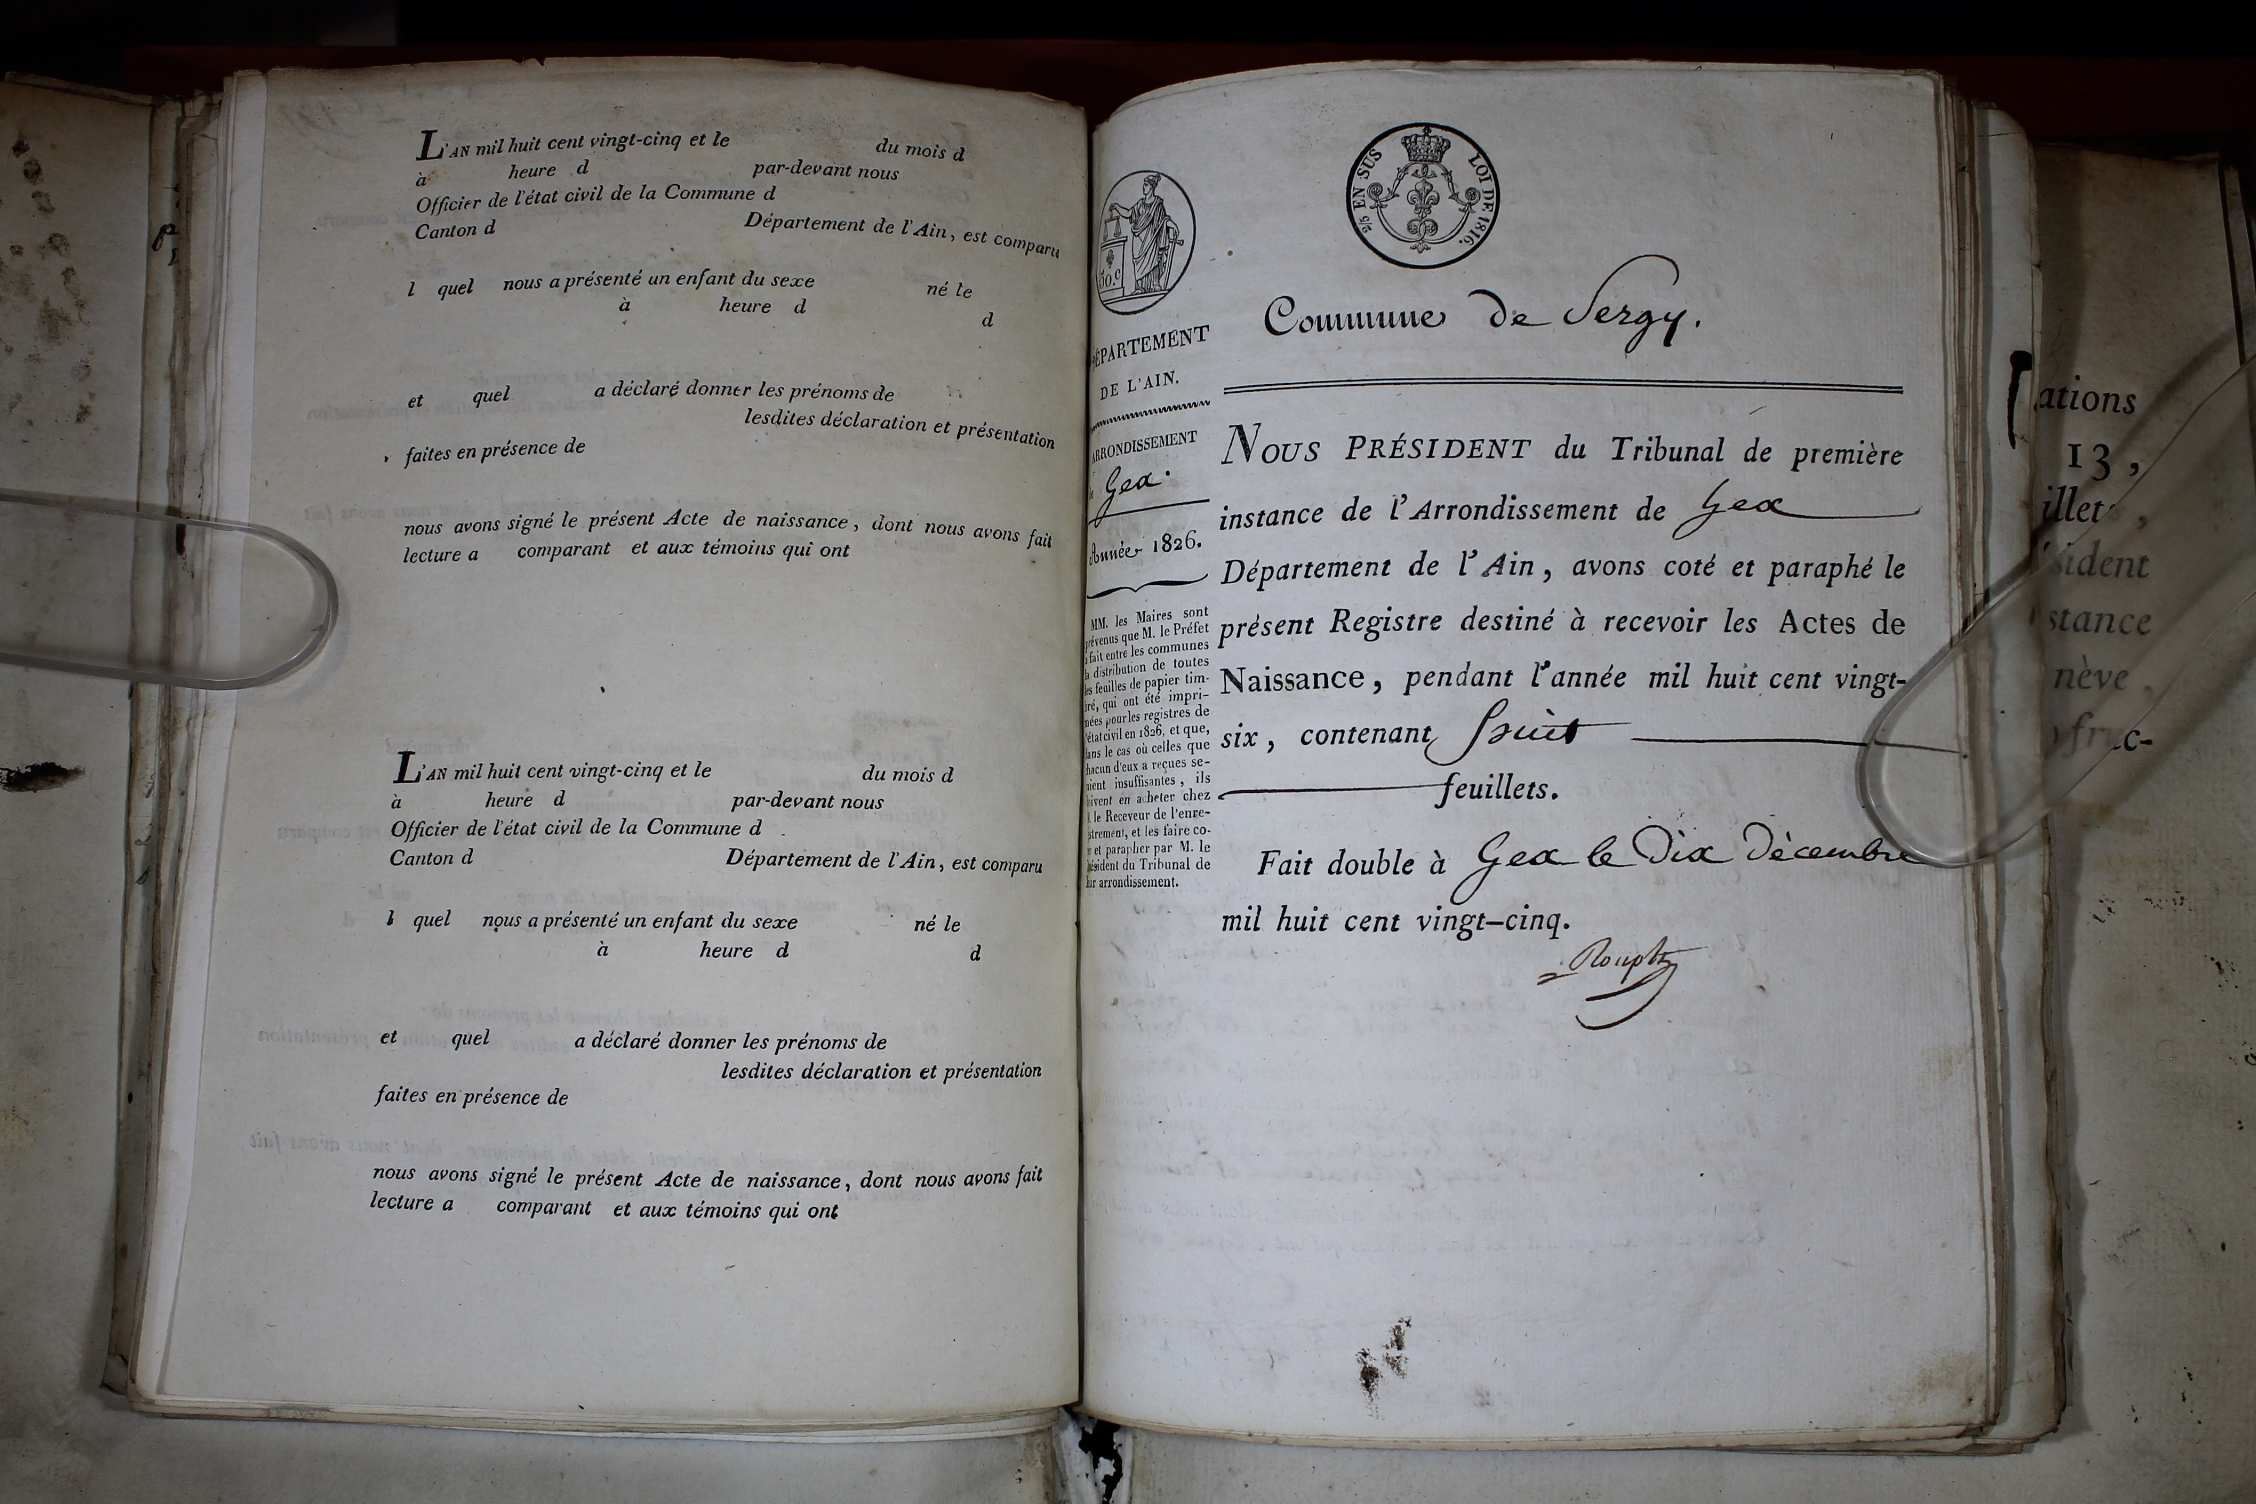 L'AN mil huit cent vingt-cinq et le du mois d
à heure d par-devant nous
Officier de l'état civil de la Commune d
Canton d Département de l'Ain, est comparu
l quel nous a présenté un enfant du sexe né le
à heure d d
et quel a déclaré donner les prénoms de
lesdites déclaration et présentation
faites en présence de
nous avons signé le présent Acte de naissance, dont nous avons fait
lecture a comparant et aux témoins qui ont
L'AN mil huit cent vingt-cinq et le du mois d
à heure d par-devant nous
Officier de l'état civil de la Commune d
Canton d Département de l'Ain, est comparu
l quel nous a présenté un enfant du sexe né le
à heure d d
et quel a déclaré donner les prénoms de
lesdites déclaration et présentation
faites en présence de
nous avons signé le présent Acte de naissance, dont nous avons fait
lecture a comparant et aux témoins qui ont
50.c
DÉPARTEMENT
DE L'AIN.
ARRONDISSEMENT
de Gex.
Année 1826.
MM. les Maires sont
prévenus que M. le Préfet
a fait entre les communes
la distribution de toutes
les feuilles de papier tim-
bré, qui ont été impri-
mées pour les registres de
l'état civil en 1826, et que,
dans le cas où celles que
chacun d'eux a reçues se-
raient insuffisantes, ils
doivent en acheter chez
M. le Receveur de l'enre-
gistrement, et les faire co-
ter et parapher par M. le
Président du Tribunal de
leur arrondissement.
2/5 EN SUS LOI DE 1816.
Commune de Sergy.
NOUS PRÉSIDENT du Tribunal de première
instance de l'Arrondissement de Gex
Département de l'Ain, avons coté et paraphé le
présent Registre destiné à recevoir les Actes de
Naissance, pendant l'année mil huit cent vingt-
six, contenant huit
feuillets.
Fait double à Gex le Dix Décembre
mil huit cent vingt-cinq.
ations
13,
illets,
sident
stance
nève,